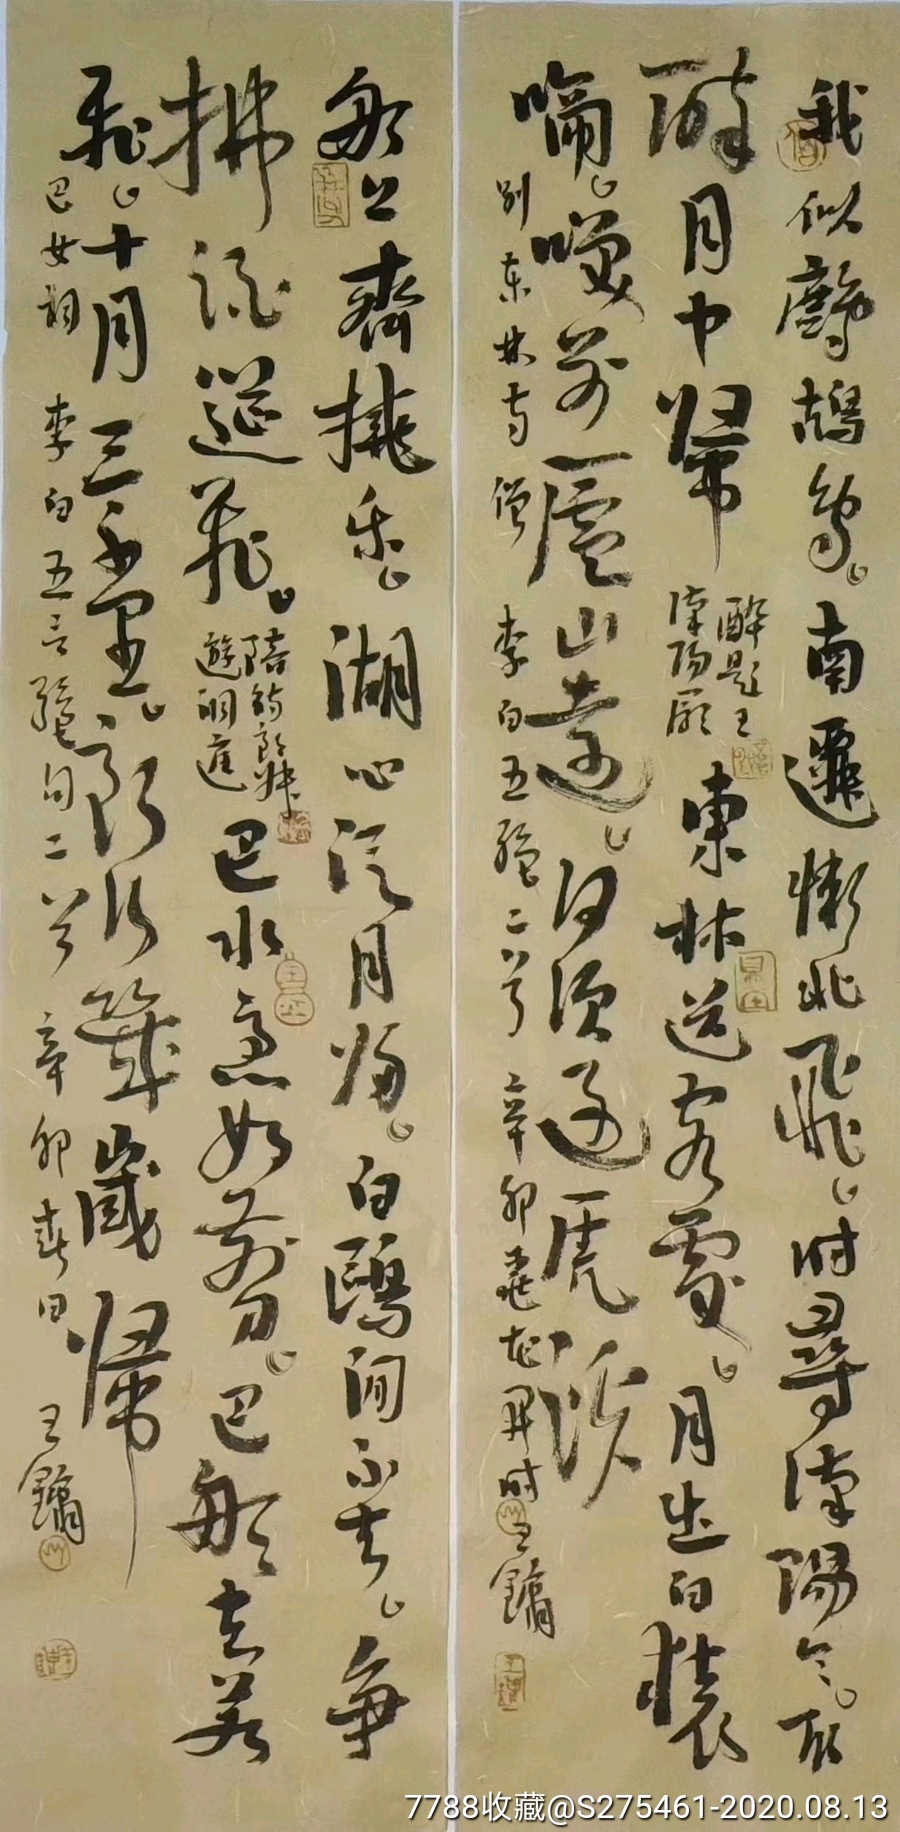 我似鷓鴣鳥。南遷懶北飛。时尋漢陽令。取
醉月中歸
醉題王
漢陽廳
東林送客處。月出白猿
啼。笑别廬山遠。何須過虎溪
别東林寺僧 李白五絶二首 辛卯花開时 王鏞
船上齊橈樂。湖心泛月歸。白鷗閒不去。争
拂酒筵飛。
陪侍郎叔
遊洞庭
巴水急如箭。巴船去若
飛。十月三千里。郎行幾歲歸
巴女詞 李白五言絶句二首 辛卯春日 王鏞
7788收藏@S275461-2020.08.13